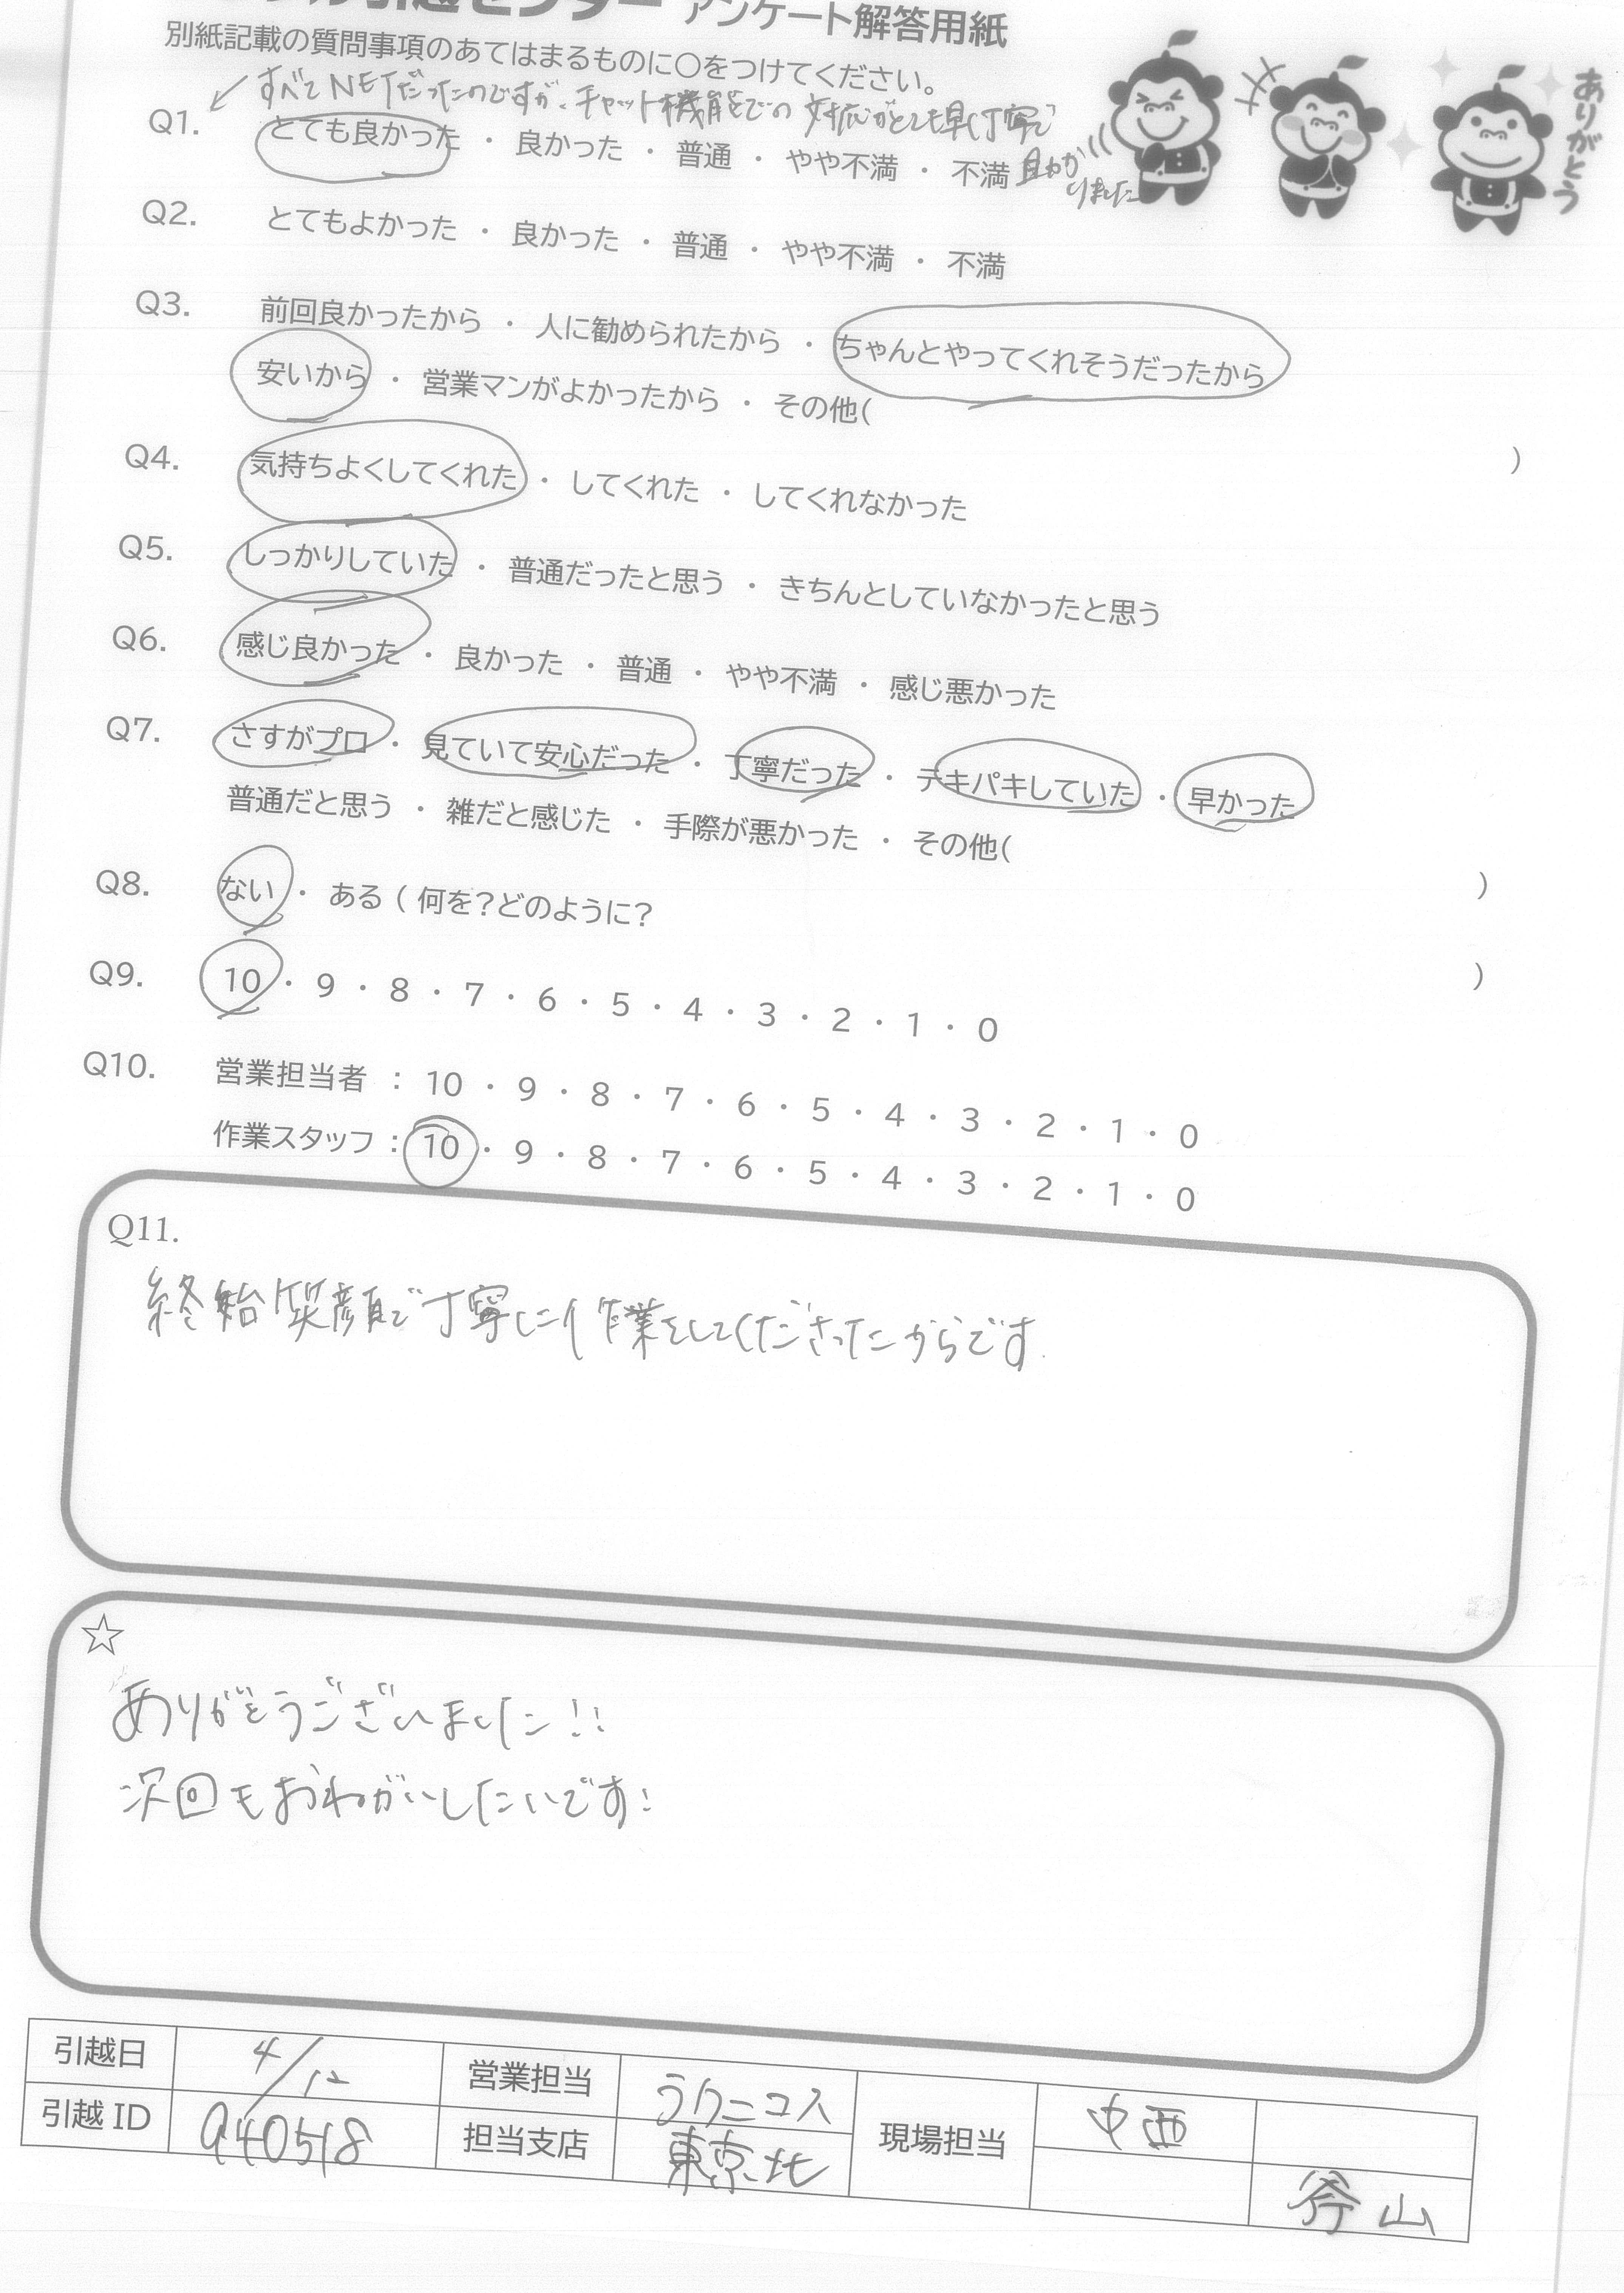 引越センター アンケート解答用紙
別紙記載の質問事項のあてはまるものに〇をつけてください。
すべてNETだったのですが、チャット機能での対応がとても早く丁寧で
助かりました
ありがとう
Q1. とても良かった ・ 良かった ・ 普通 ・ やや不満 ・ 不満
Q2. とてもよかった ・ 良かった ・ 普通 ・ やや不満 ・ 不満
Q3. 前回良かったから ・ 人に勧められたから ・ ちゃんとやってくれそうだったから
安いから ・ 営業マンがよかったから ・ その他( )
Q4. 気持ちよくしてくれた ・ してくれた ・ してくれなかった
Q5. しっかりしていた ・ 普通だったと思う ・ きちんとしていなかったと思う
Q6. 感じ良かった ・ 良かった ・ 普通 ・ やや不満 ・ 感じ悪かった
Q7. さすがプロ ・ 見ていて安心だった ・ 丁寧だった ・ テキパキしていた ・ 早かった
普通だと思う ・ 雑だと感じた ・ 手際が悪かった ・ その他( )
Q8. ない ・ ある ( 何を？どのように？ )
Q9. 10 ・ 9 ・ 8 ・ 7 ・ 6 ・ 5 ・ 4 ・ 3 ・ 2 ・ 1 ・ 0
Q10. 営業担当者 : 10 ・ 9 ・ 8 ・ 7 ・ 6 ・ 5 ・ 4 ・ 3 ・ 2 ・ 1 ・ 0
作業スタッフ : 10 ・ 9 ・ 8 ・ 7 ・ 6 ・ 5 ・ 4 ・ 3 ・ 2 ・ 1 ・ 0
Q11.
終始笑顔で丁寧に作業をしてくださったからです.
☆
ありがとうございました!!
次回もおねがいしたいです!
引越日 4/12 営業担当 現場担当 中西
引越 ID 940518 担当支店 東京北 山